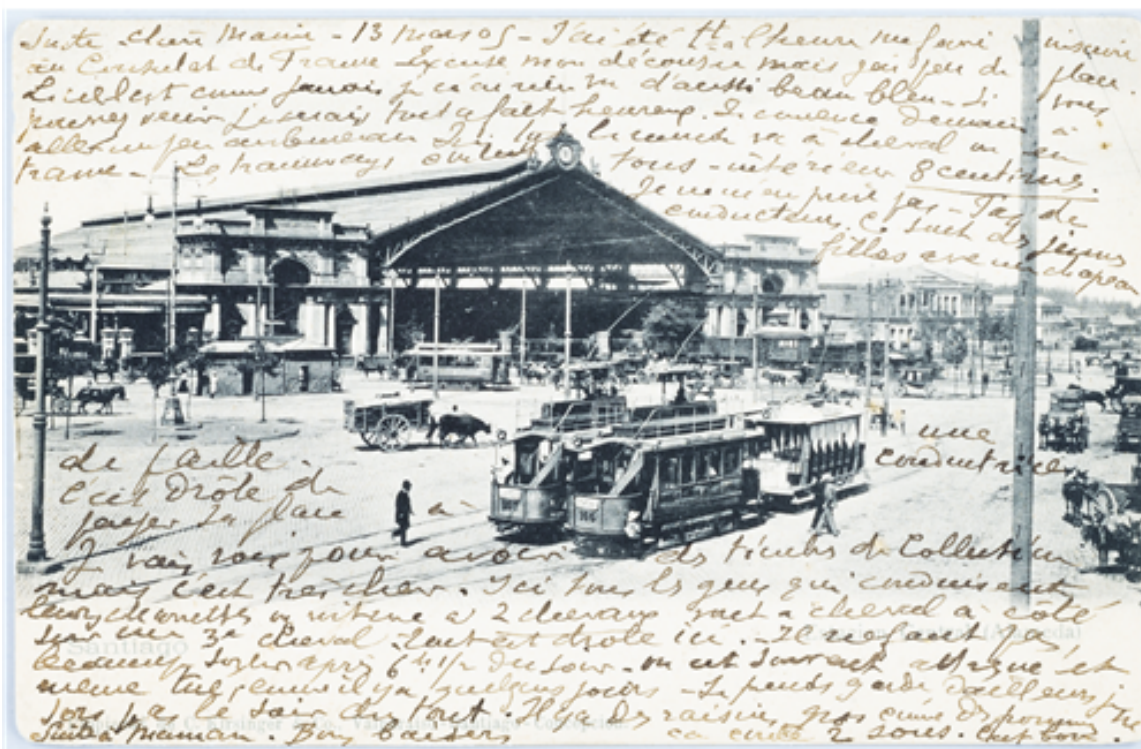 Suite chère Maman - 13 mars 05 - J'ai été tt à l'heure me faire inscrire
au Consulat de France. Excuse mon décousu mais j'ai peu de place.
Le ciel est comme jamais je n'ai rien vu d'aussi beau bleu - Si vous
pouvez venir je serais tout à fait heureux. Je commence demain à
aller un peu au bureau. Ici tout le monde va à cheval ou en
tram - Le tramways tous - intérieur 8 centimes.
Je ne m'en prive pas - Pas de
conducteurs, ce sont des jeunes
filles avec un chapeau
de paille.
C'est drôle de
payer sa place à
une
conductrice
Je vais voir pour avoir des timbres de Collection
mais c'est très cher. Ici tous les gens qui conduisent
leurs charrettes ou voitures à 2 chevaux sont à cheval à côté
sur un 3e cheval. Tout est drôle ici. Il ne faut pas
Santiago
Estacion Central (Alameda)
beaucoup sortir après 6h 1/2 du soir - on est souvent attaqué et
même tué, comme il y a quelques jours - Je prends garde d'ailleurs je ne
sors pas le soir du tout. Il y a des raisins, gros comme des
C. Kirsinger & Co., Valparaiso-Santiago-Concepcion
Suite à Maman. Bons baisers ça coûte 2 sous. C'est bon.